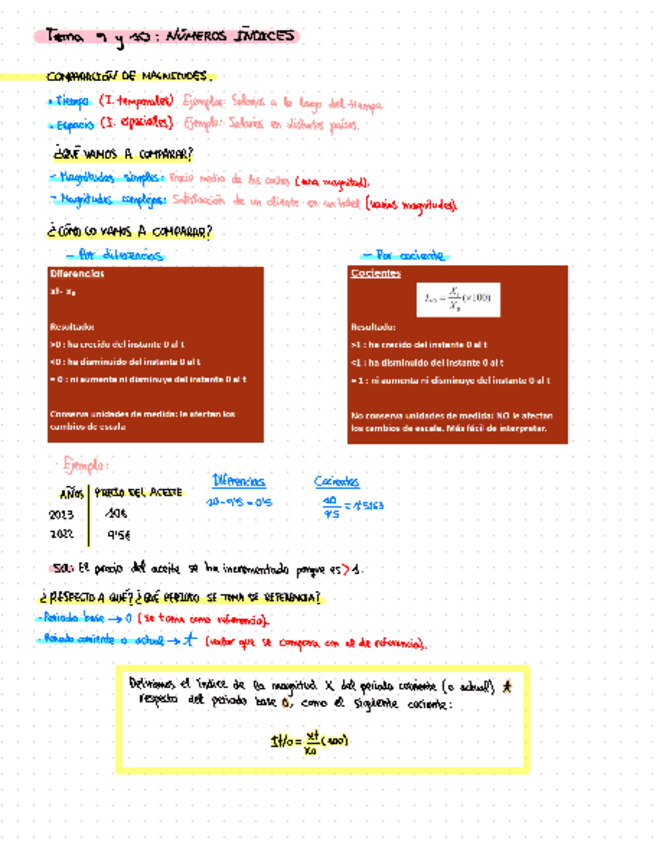 Tema 9 y 10: NÚMEROS ÍNDICES
COMPARACIÓN DE MAGNITUDES.
- Tiempo (I. temporales) Ejemplos: Salarios a lo largo del tiempo
- Espacio (I. espaciales) Ejemplo: Salarios en distintos países.
¿QUÉ VAMOS A COMPARAR?
- Magnitudes simples: Precio medio de los coches (una magnitud).
- Magnitudes complejas: Satisfacción de un cliente en un hotel (varias magnitudes).
¿CÓMO LO VAMOS A COMPARAR?
- Por diferencias
- Por cociente
Diferencias
xt - x0
Resultado:
>0 : ha crecido del instante 0 al t
<0 : ha disminuido del instante 0 al t
= 0 : ni aumenta ni disminuye del instante 0 al t
Conserva unidades de medida: le afectan los
cambios de escala
Cocientes
It/0 = Xt/X0 (×100)
Resultado:
>1 : ha crecido del instante 0 al t
<1 : ha disminuido del instante 0 al t
= 1 : ni aumenta ni disminuye del instante 0 al t
No conserva unidades de medida: NO le afectan
los cambios de escala. Más fácil de interpretar.
Ejemplo:
AÑOS PRECIO DEL ACEITE
2023 10€
2022 9'5€
Diferencias
10-9'5 = 0'5
Cocientes
10/9'5
Sol: El precio del aceite se ha incrementado porque es >1.
¿RESPECTO A QUÉ? ¿QUÉ PERIODO SE TOMA DE REFERENCIA?
- Periodo base → 0 (se toma como referencia).
- Periodo corriente o actual → t (valor que se compara con el de referencia).
Definimos el índice de la magnitud X del periodo corriente (o actual) t
respecto del periodo base 0, como el siguiente cociente:
It/0 = xt/x0 (100)